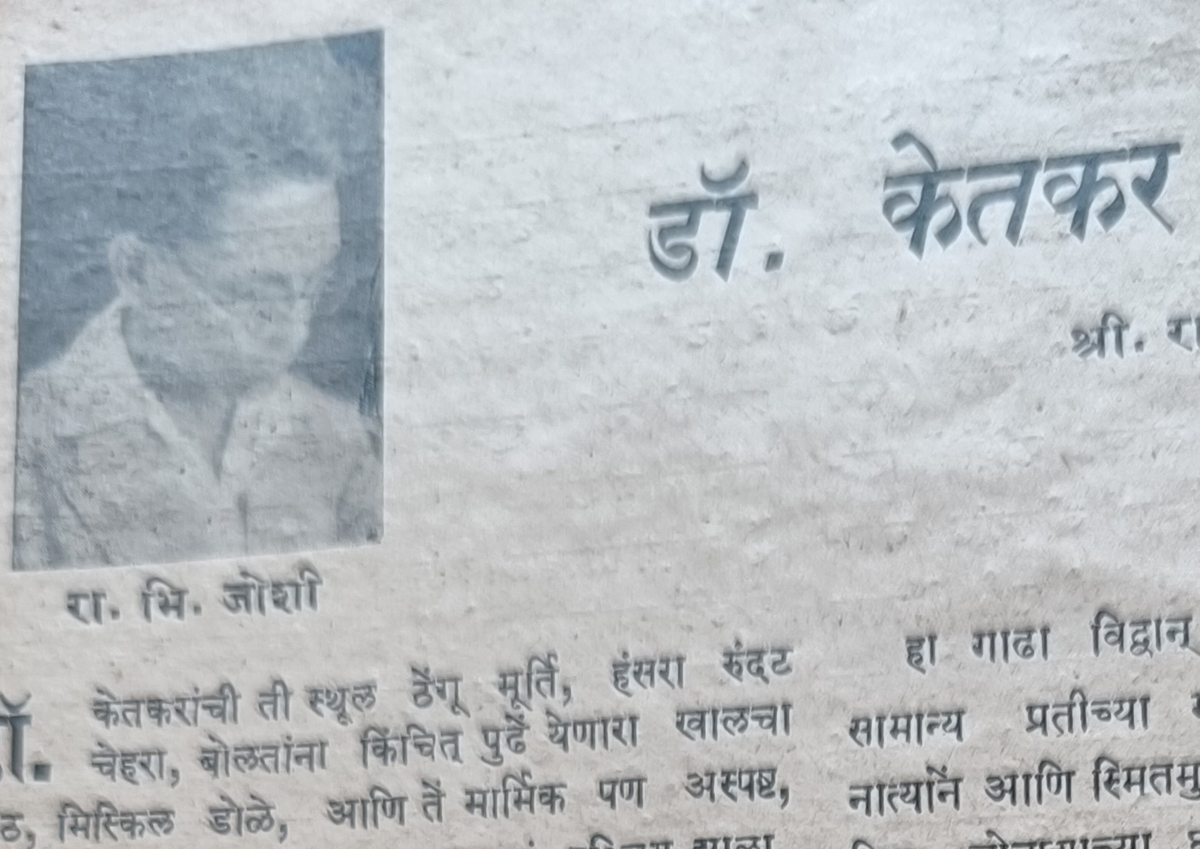 डॉ. केतकर
श्री. रा
रा. भि. जोशी
डॉ. केतकरांची ती स्थूल ठेंगू मूर्ति, हंसरा रुंदट
चेहरा, बोलतांना किंचित् पुढें येणारा खालचा
ठ, मिस्किल डोळे, आणि तें मार्मिक पण अस्पष्ट,
हा गाढा विद्वान्
सामान्य प्रतीच्या
नात्यानें आणि स्मितमु